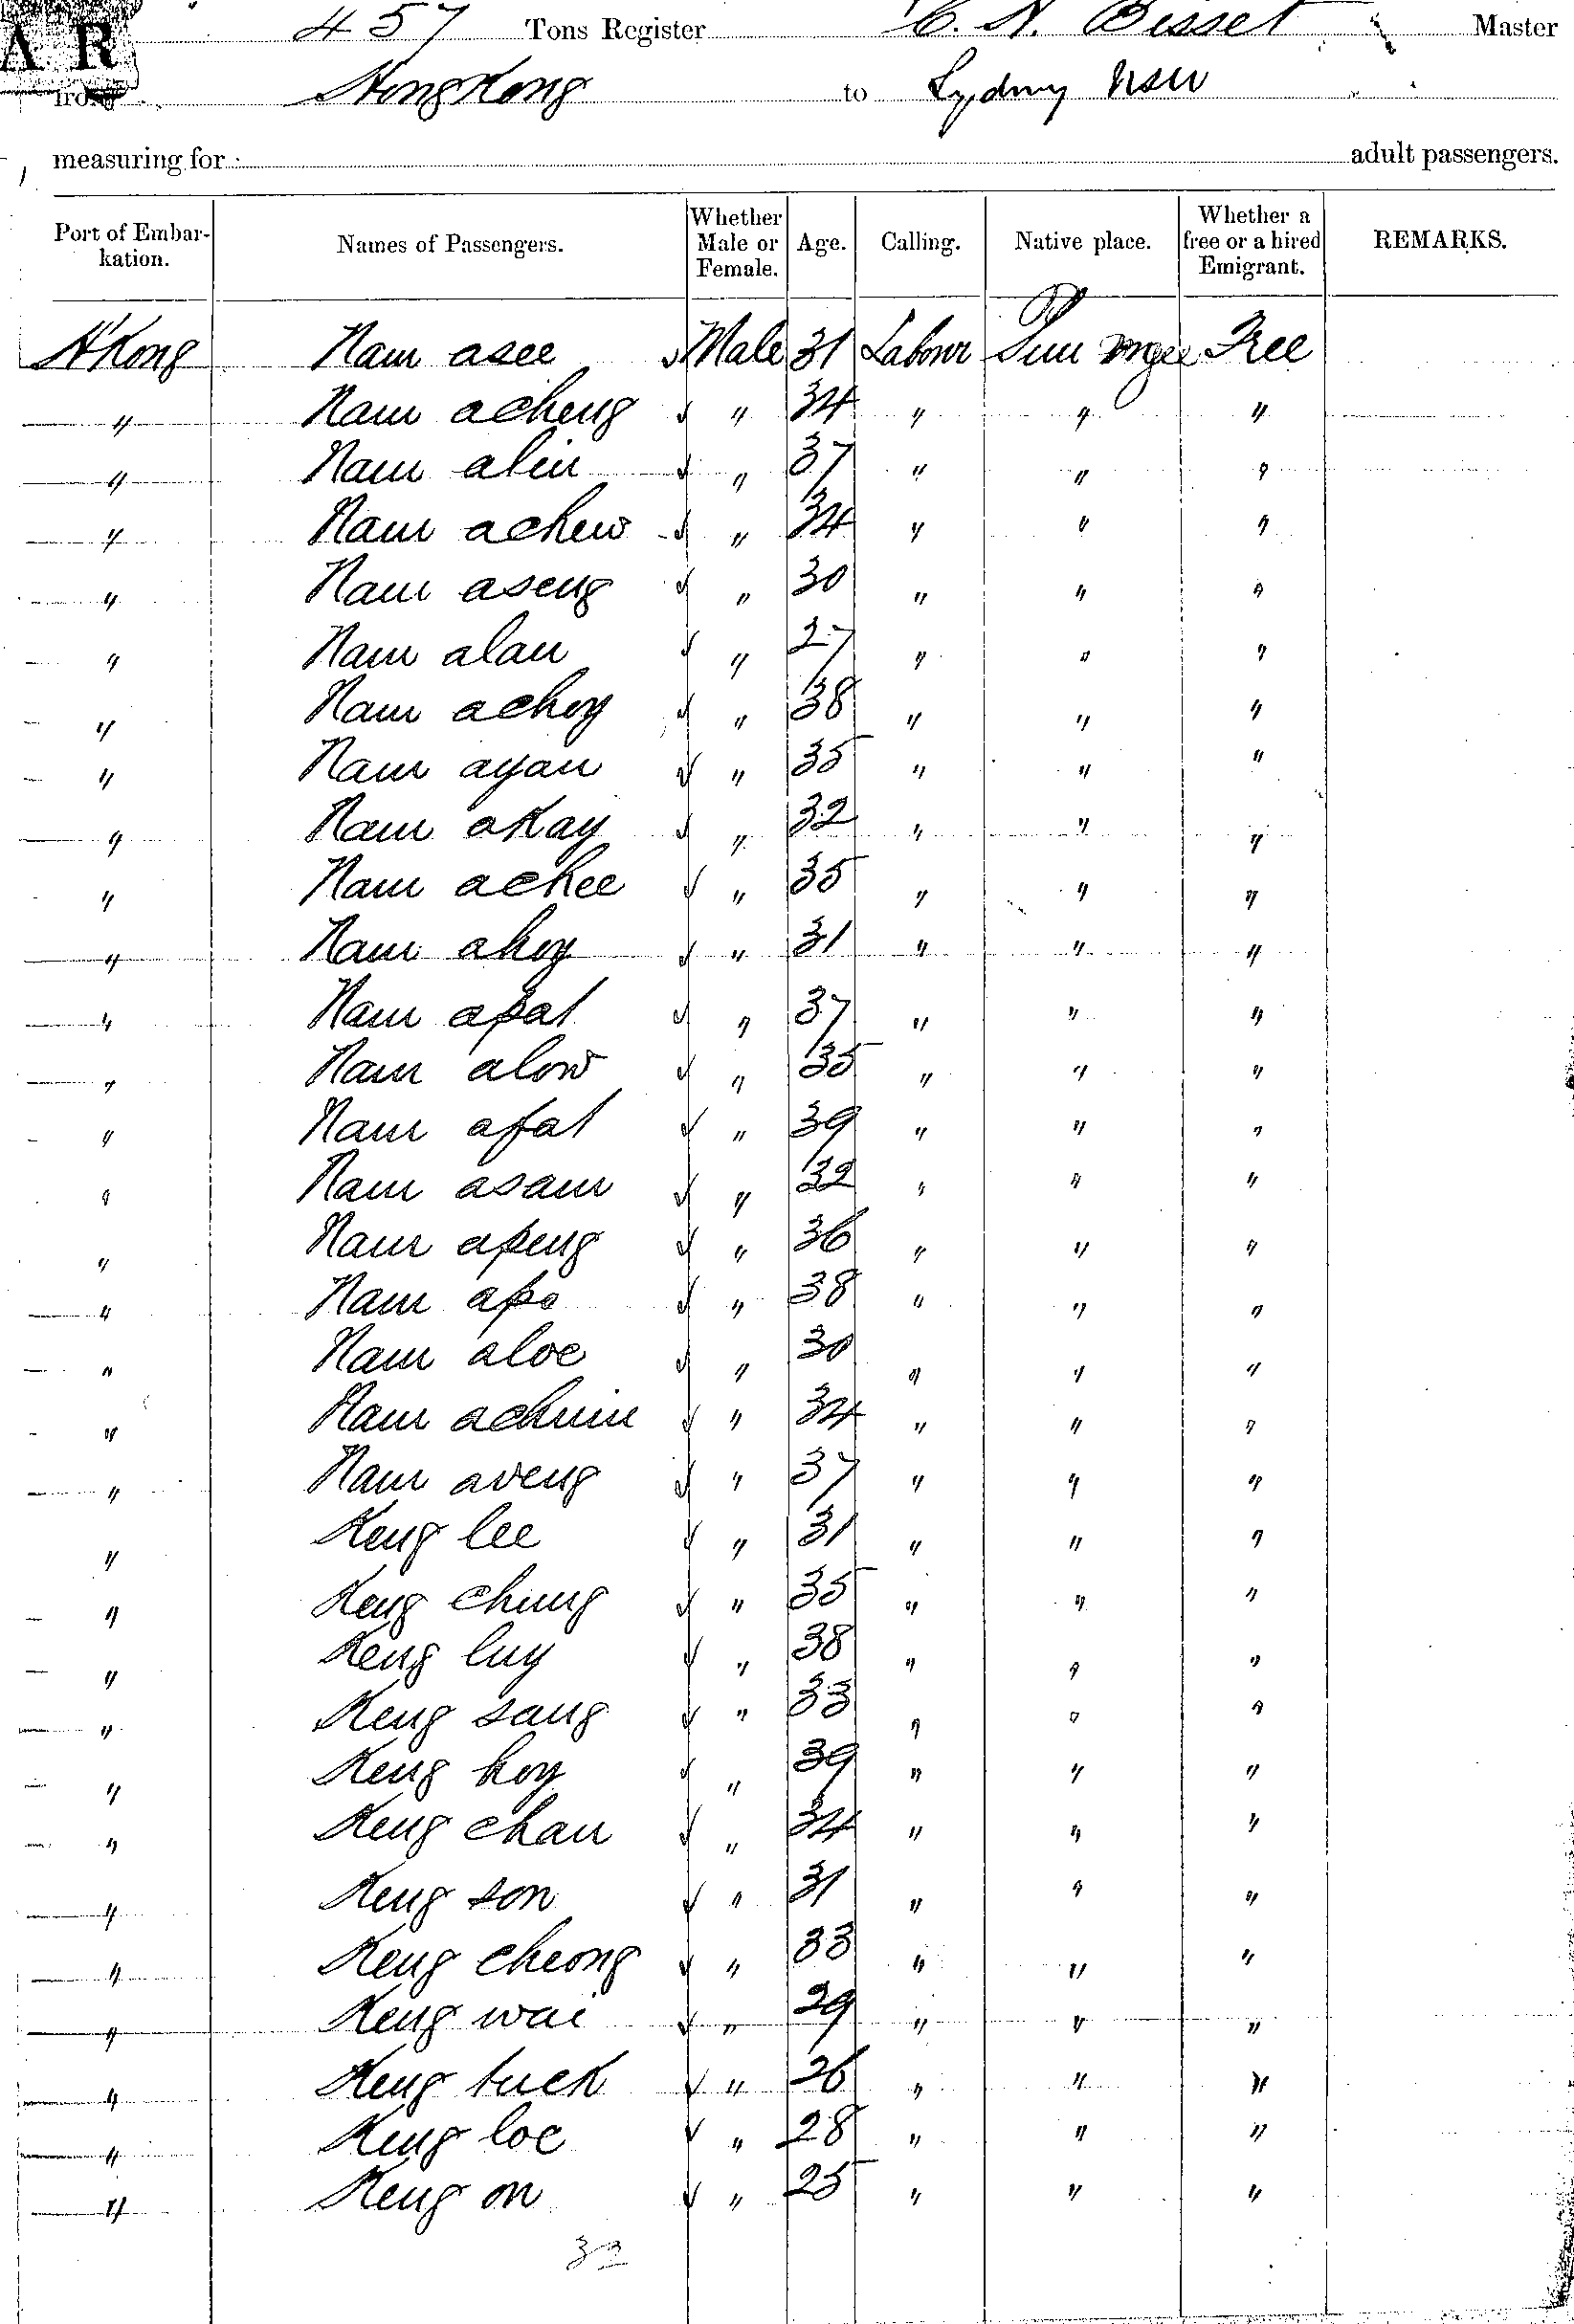 A R
457 Tons Register C. N. Bisset Master
from HongKong to Sydney NSW
measuring for adult passengers.
Port of Embarkation. Names of Passengers. Whether Male or Female. Age. Calling. Native place. Whether a free or a hired Emigrant. REMARKS.
H'Kong Nam asee Male 31 Labour Free
" Nam acheng " 34 " " "
" Nam alin " 37 " " "
" Nam achew " 34 " " "
" Nam aseng " 30 " " "
" Nam alan " 27 " " "
" Nam achoy " 38 " " "
" Nam ayan " 35 " " "
" Nam aKay " 32 " " "
" Nam achee " 35 " " "
" Nam ahoy " 31 " " "
" Nam apat " 37 " " "
" Nam alow " 35 " " "
" Nam afat " 39 " " "
" Nam asam " 32 " " "
" Nam apeng " 36 " " "
" Nam apo " 38 " " "
" Nam aloe " 30 " " "
" Nam " 34 " " "
" Nam aveng " 37 " " "
" Keng lee " 31 " " "
" Keng chung " 35 " " "
" Keng luy " 38 " " "
" Keng sang " 33 " " "
" Keng hoy " 39 " " "
" Keng chan " 34 " " "
" Keng son " 31 " " "
" Keng cheong " 33 " " "
" Keng wai " 29 " " "
" Keng tuck " 26 " " "
" Keng loe " 28 " " "
" Keng on " 25 " " "